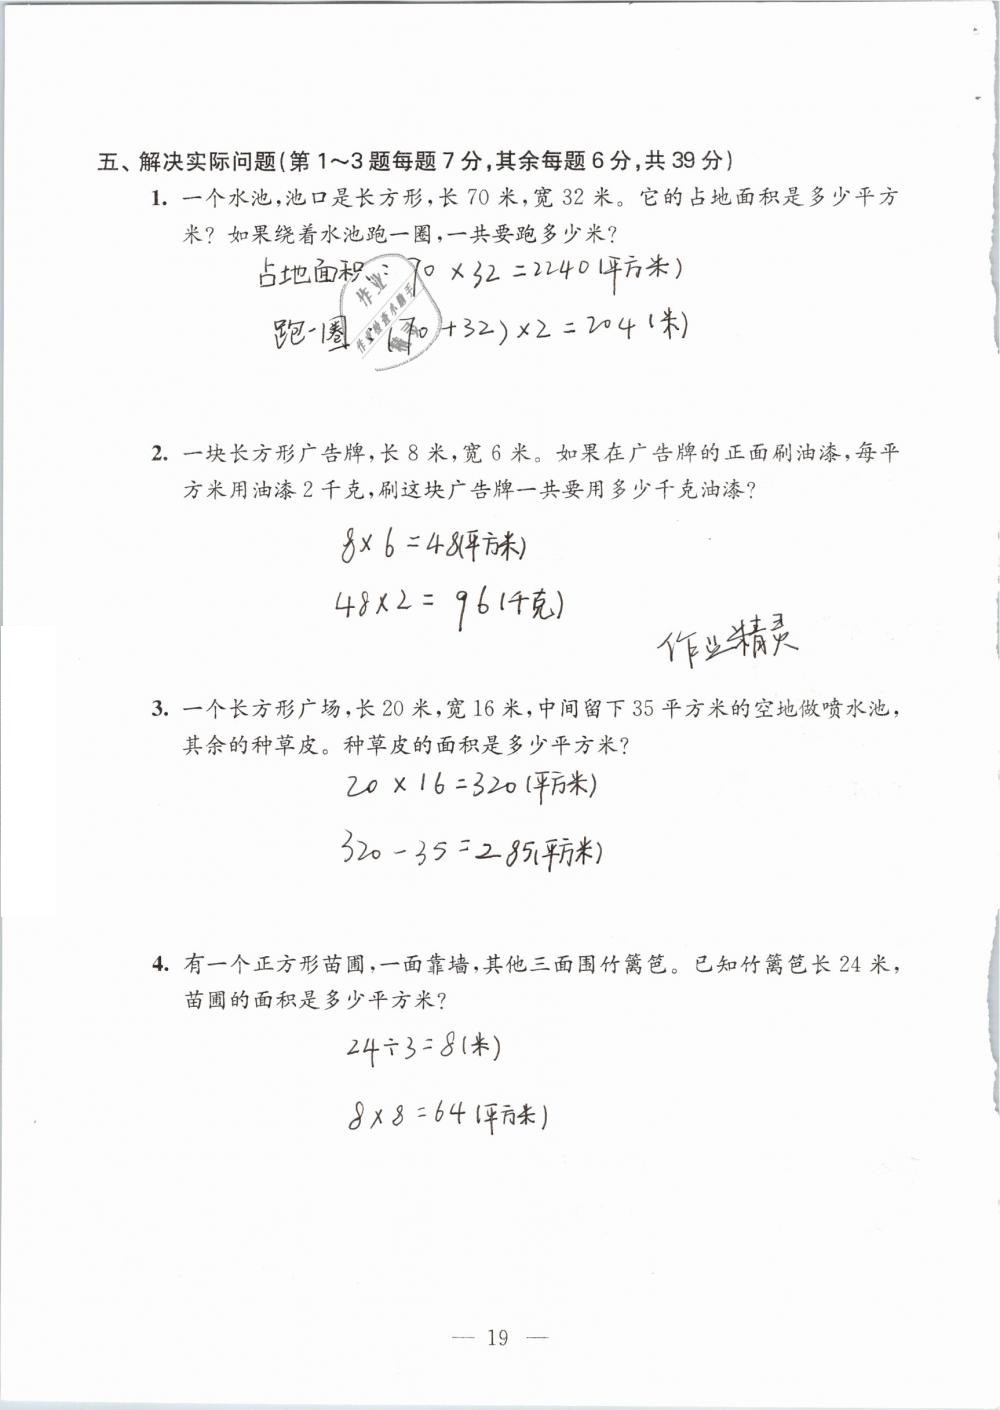 五、解决实际问题(第1～3题每题7分,其余每题6分,共39分)
1. 一个水池,池口是长方形,长70米,宽32米。它的占地面积是多少平方
米?如果绕着水池跑一圈,一共要跑多少米?
占地面积:70×32=2240(平方米)
跑一圈 (70+32)×2=204(米)
作业
作业检查小助手
精灵
2. 一块长方形广告牌,长8米,宽6米。如果在广告牌的正面刷油漆,每平
方米用油漆2千克,刷这块广告牌一共要用多少千克油漆?
8×6=48(平方米)
48×2=96(千克)
作业精灵
3. 一个长方形广场,长20米,宽16米,中间留下35平方米的空地做喷水池,
其余的种草皮。种草皮的面积是多少平方米?
20×16=320(平方米)
320-35=285(平方米)
4. 有一个正方形苗圃,一面靠墙,其他三面围竹篱笆。已知竹篱笆长24米,
苗圃的面积是多少平方米?
24÷3=8(米)
8×8=64(平方米)
— 19 —